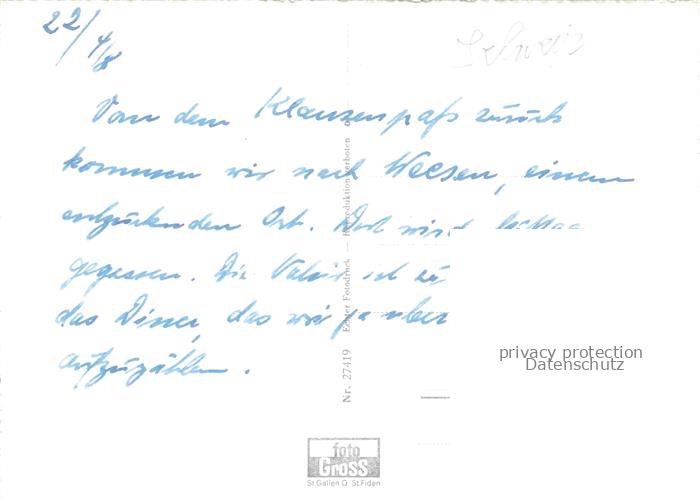 22/4/8
Schweiz
Von dem Klausenpaß zurück
kommen wir nach Weesen, einem
entzückenden Ort. Dort wird
gegessen. Die ist zu
das Diner, das wir ja aber
aufzuzählen.
Nr. 27419 Echter Fotodruck — Reproduktion verboten
privacy protection
Datenschutz
foto
Gross
St. Gallen O St. Fiden